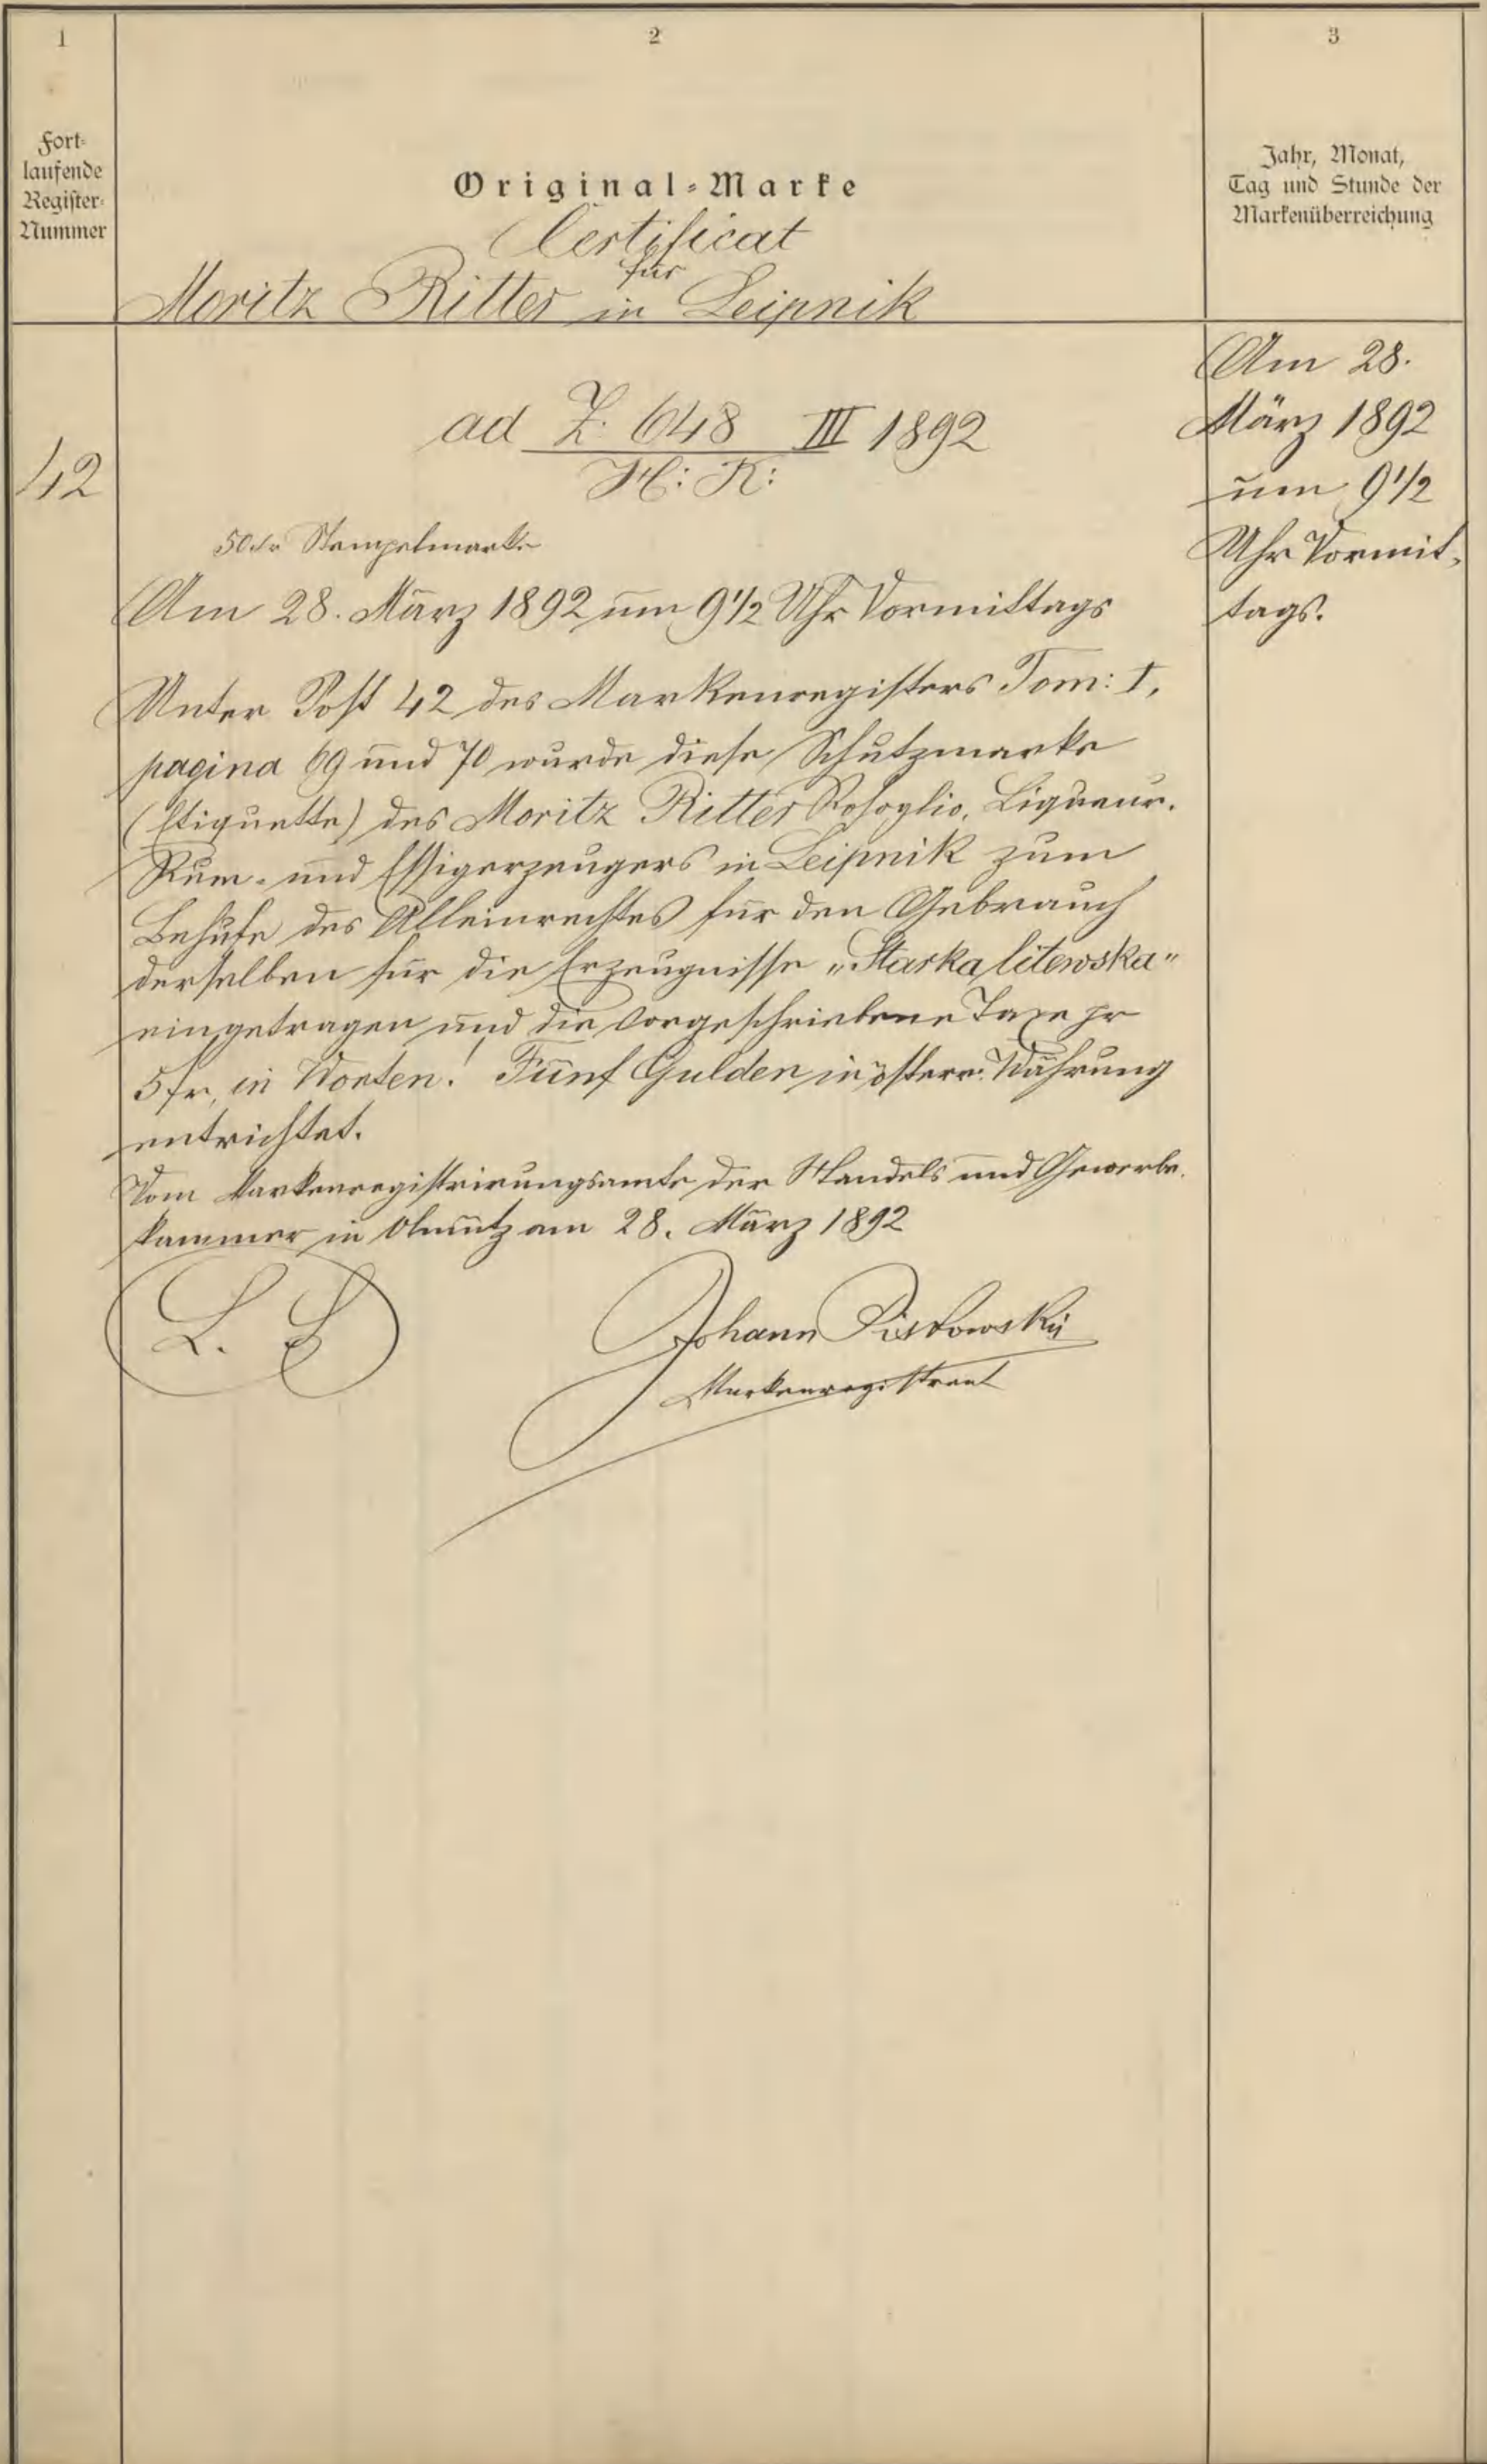 1
2
3
Fort-
laufende
Register-
Nummer
Original-Marke
Jahr, Monat,
Tag und Stunde der
Markenüberreichung
Certificat
für
Moritz Ritter in Leipnik
42
ad Z. 648 III 1892
H: K:
50 kr Stempelmarke
Am 28. März 1892 um 9 1/2 Uhr Vormittags
Unter Post 42 des Markenregisters Tom: I,
pagina 69 und 70 wurde diese Schutzmarke
(Etiquette) des Moritz Ritter Rosoglio, Liqueur-
Rum- und Essigerzeugers in Leipnik zum
Behufe des Alleinrechtes für den Gebrauch
derselben für die Erzeugnisse „Starka litewska"
eingetragen und die vorgeschriebene Taxe pr
5 fr, in Worten! Fünf Gulden in österr. Währung
entrichtet.
Vom Markenregistrirungsamte der Handels und Gewerbe-
kammer in Olmütz am 28. März 1892
L. S
Johann
Markenregistrant
Am 28.
März 1892
um 9 1/2
Uhr Vormit-
tags.